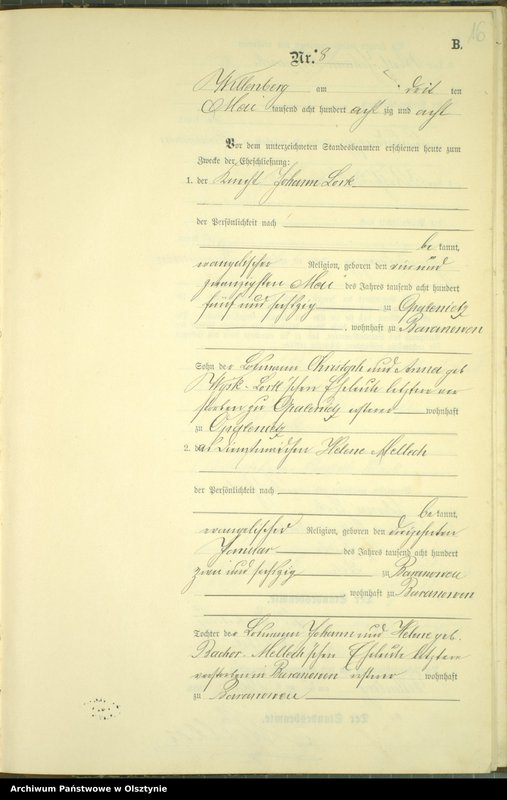 16
B.
Nr. 8
Willenberg am drit ten
Mai tausend acht hundert acht zig und acht
Vor dem unterzeichneten Standesbeamten erschienen heute zum
Zwecke der Eheschließung:
1. der Knecht Johann Lork
der Persönlichkeit nach
be kannt,
evangelischer Religion, geboren den ein und
zwanzigsten Mai des Jahres tausend acht hundert
fünf und sechszig zu Opalenietz
, wohnhaft zu Baranowen
Sohn der Losmann Christoph und Anna geb
Lork'schen Eheleute letztere ver
storben zu Opalenietz ersterer wohnhaft
zu Opalenietz
2. das Dienstmädchen Helene Melloch
der Persönlichkeit nach
be kannt,
evangelischer Religion, geboren den dreizehnten
Januar des Jahres tausend acht hundert
zwei und sechszig zu Baranowen
, wohnhaft zu Baranowen
Tochter der Losmann Johann und Helene geb.
Bachor-Melloch'schen Eheleute letztere
verstorben in Baranowen ersterer wohnhaft
zu Baranowen
Archiwum Państwowe w Olsztynie